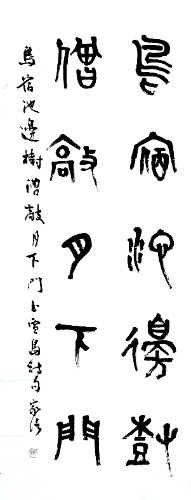 鳥宿池邊樹
僧敲月下門
鳥宿池邊樹僧敲月下門